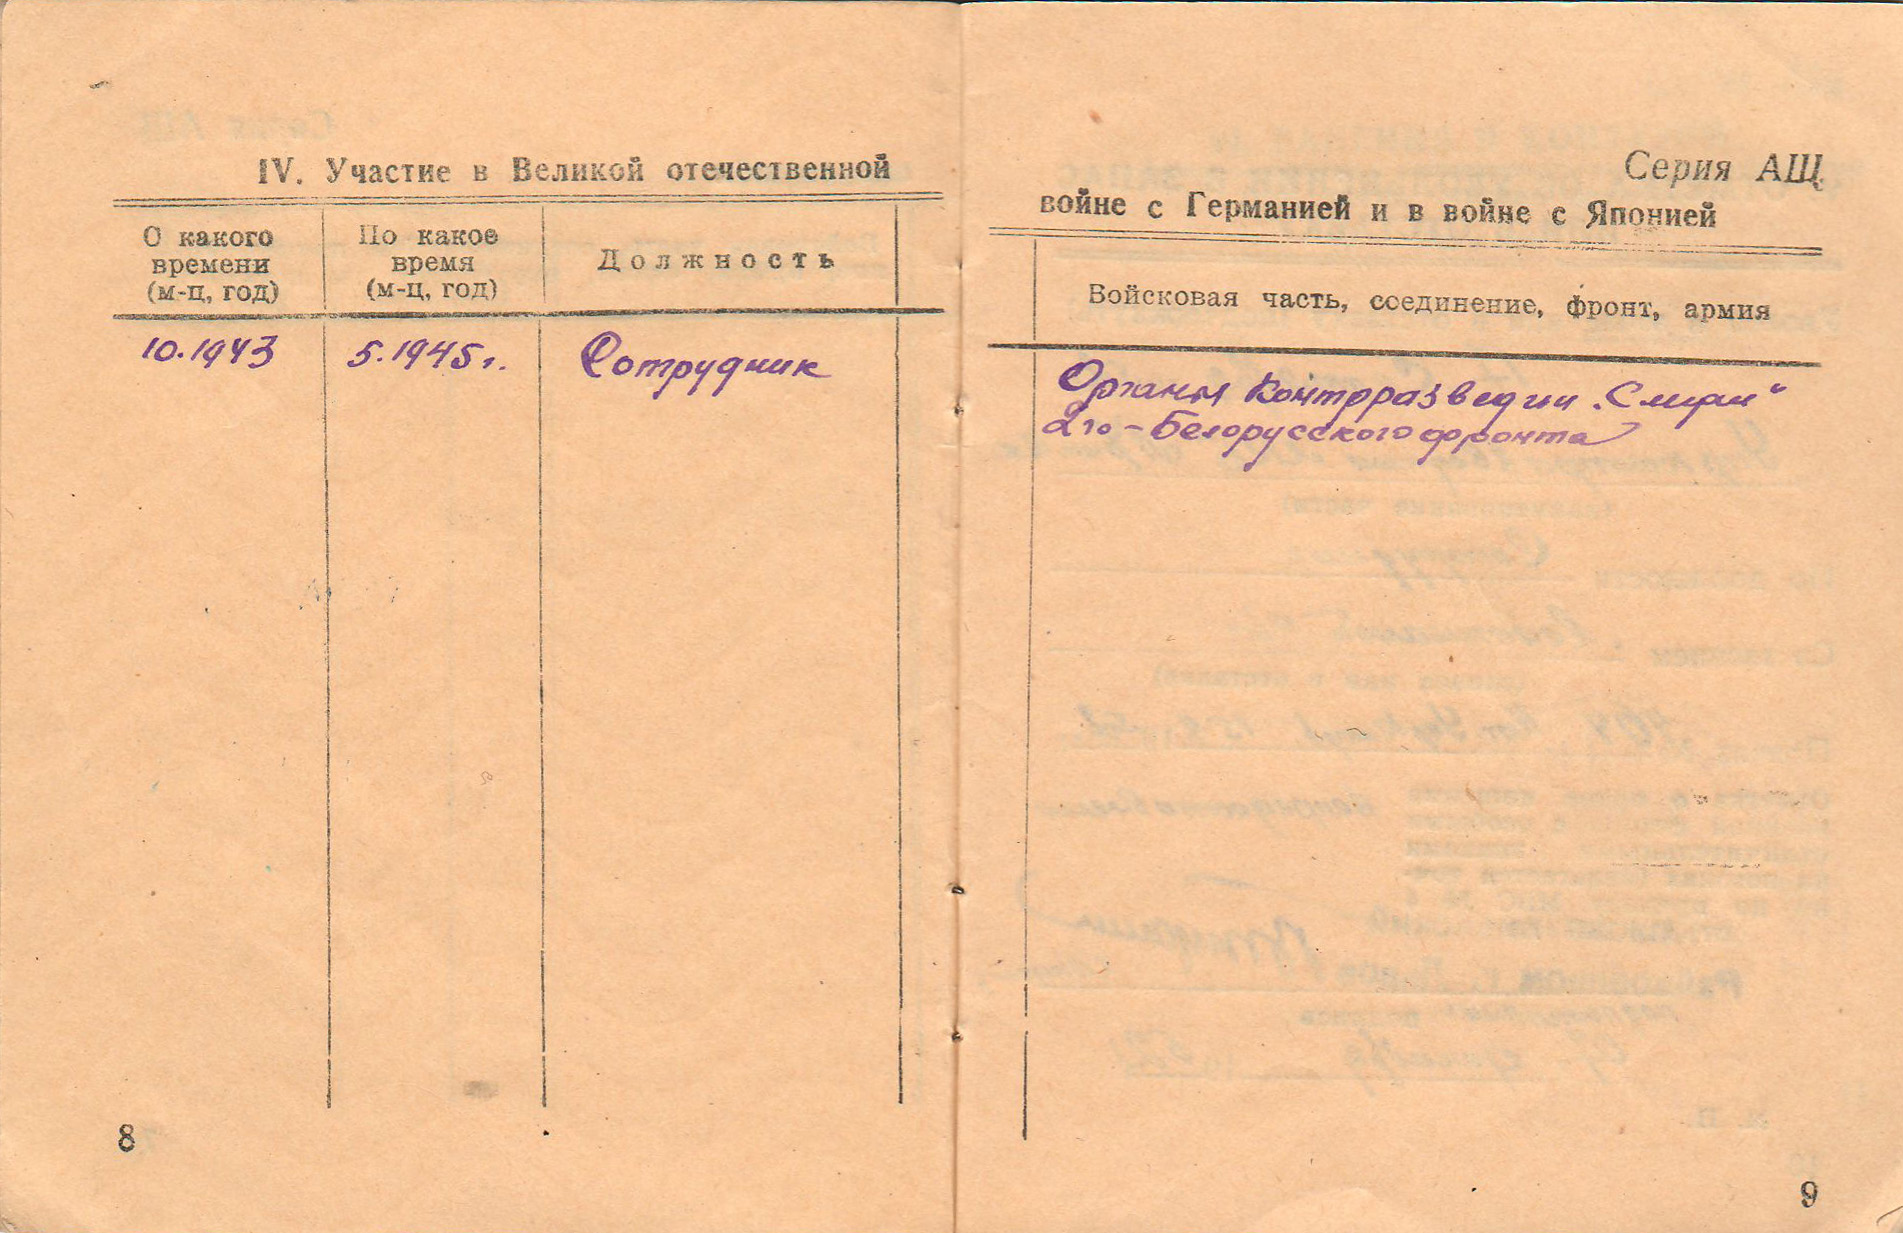 IV. Участие в Великой отечественной
С какого
времени
(м-ц, год)
По какое
время
(м-ц, год)
Должность
10.1943
5.1945г.
Сотрудник
8
Серия АЩ
войне с Германией и в войне с Японией
Войсковая часть, соединение, фронт, армия
Органы Контрразведки „Смерш“
2го – Белорусского фронта
9